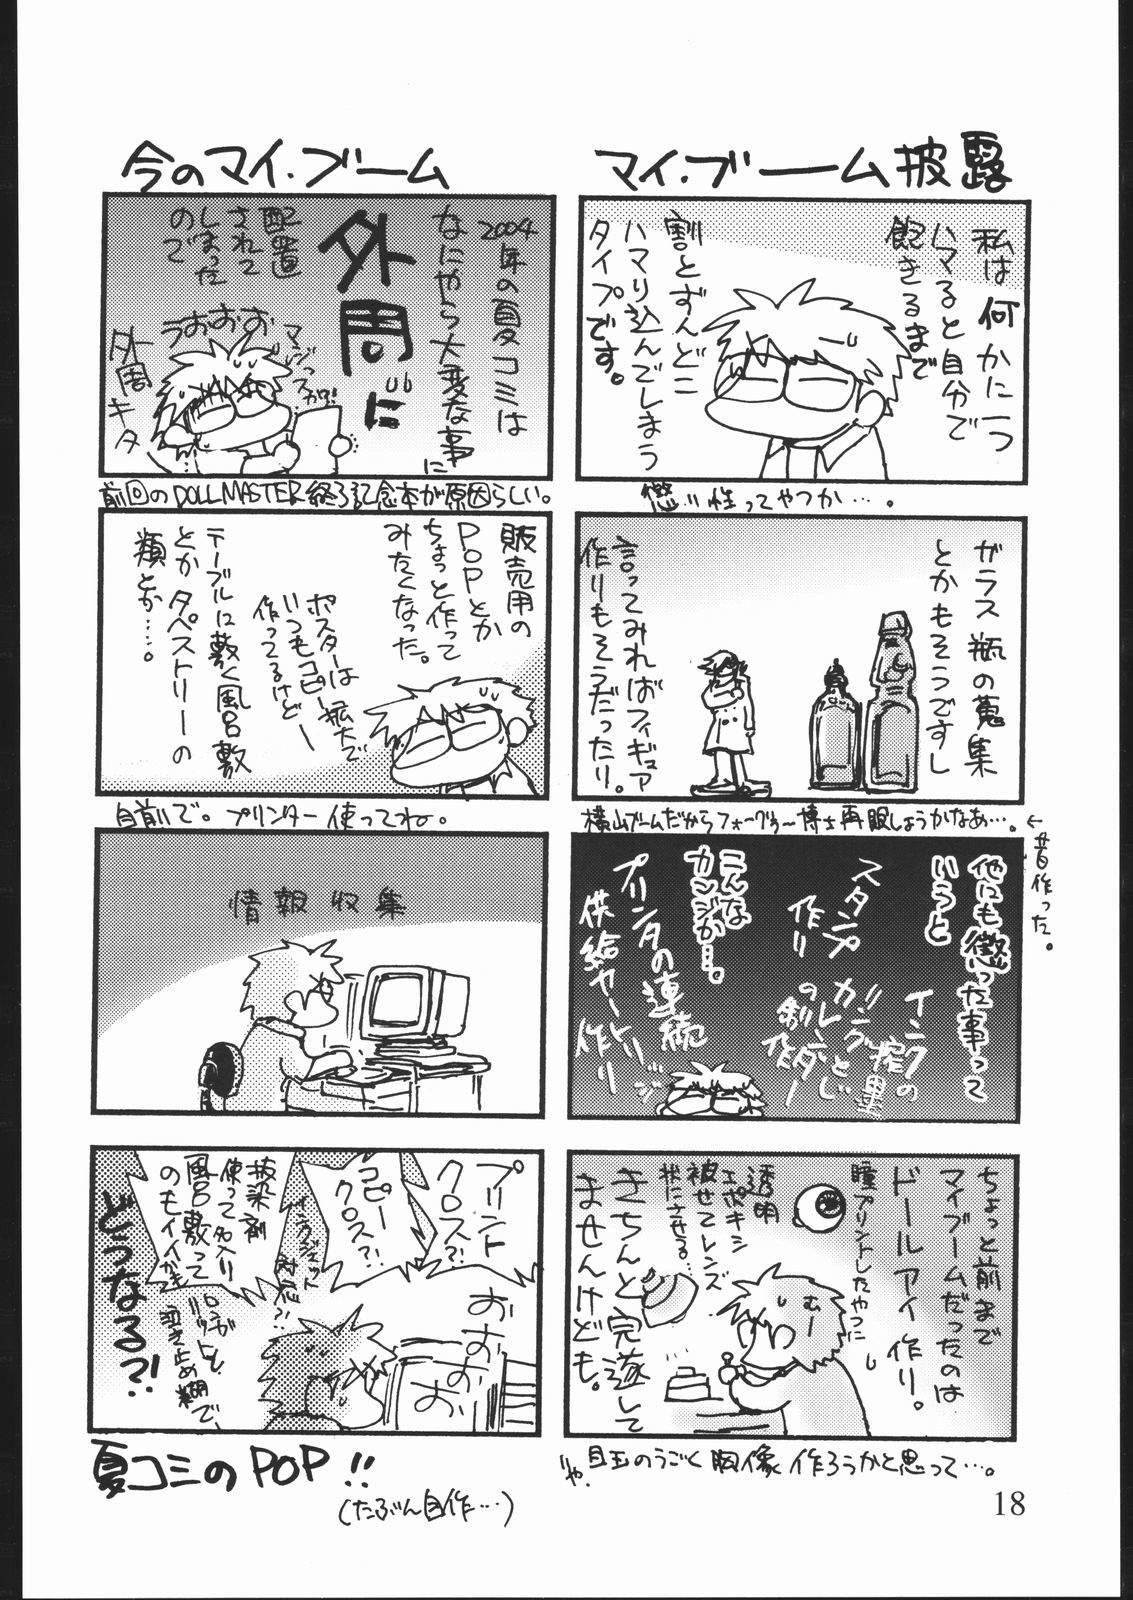 マイ・ブーム披露
私は何かに一つ
ハマると自分で
飽きるまで
割とずんどこ
ハマり込んでしまう
タイプです。
性ってやつか…。
ガラス瓶の蒐集
とかもそうですし
言ってみればフィギュア
作りもそうだったり。
横山ブームだからフォーグラー博士再販しようかなあ…。
←昔作った。
他にも懲った事って
いうと
インクの
スタンプ
作り
リングとじ
カレンダー
の
こんな
カンジか…。
プリンタの連続
供給ヤード作り
ちょっと前まで
マイブームだったのは
ドールアイ作り。
瞳プリントしたやつに
透明
エポキシ
被せてレンズ
状にさせる…
むー
きちんと完遂して
ませんけども。
いや、目玉のうごく胸像作ろうかと思って…。
今のマイ・ブーム
2004年の夏コミは
なにやら大変な事に
外周に
配置
されて
しまった
ので
うおおお
マジっスか!?
外周キタ
前回のDOLLMASTER終了記念本が原因らしい。
販売用の
POPとか
ちょっと作って
みたくなった。
ポスターは拡大で
いつもコピー
作ってるけどー
テーブルに敷く風呂敷
とかタペストリーの
類とか……。
自前で。プリンター使ってね。
情報収集
プリント
クロス?!
コピー
クロス?!
インクジェット
対応?!
抜染剤
使って名入り
風呂敷って
のもイイかも
おおおお
どうなる?!
夏コミのPOP!!
(たぶん自作…)
18